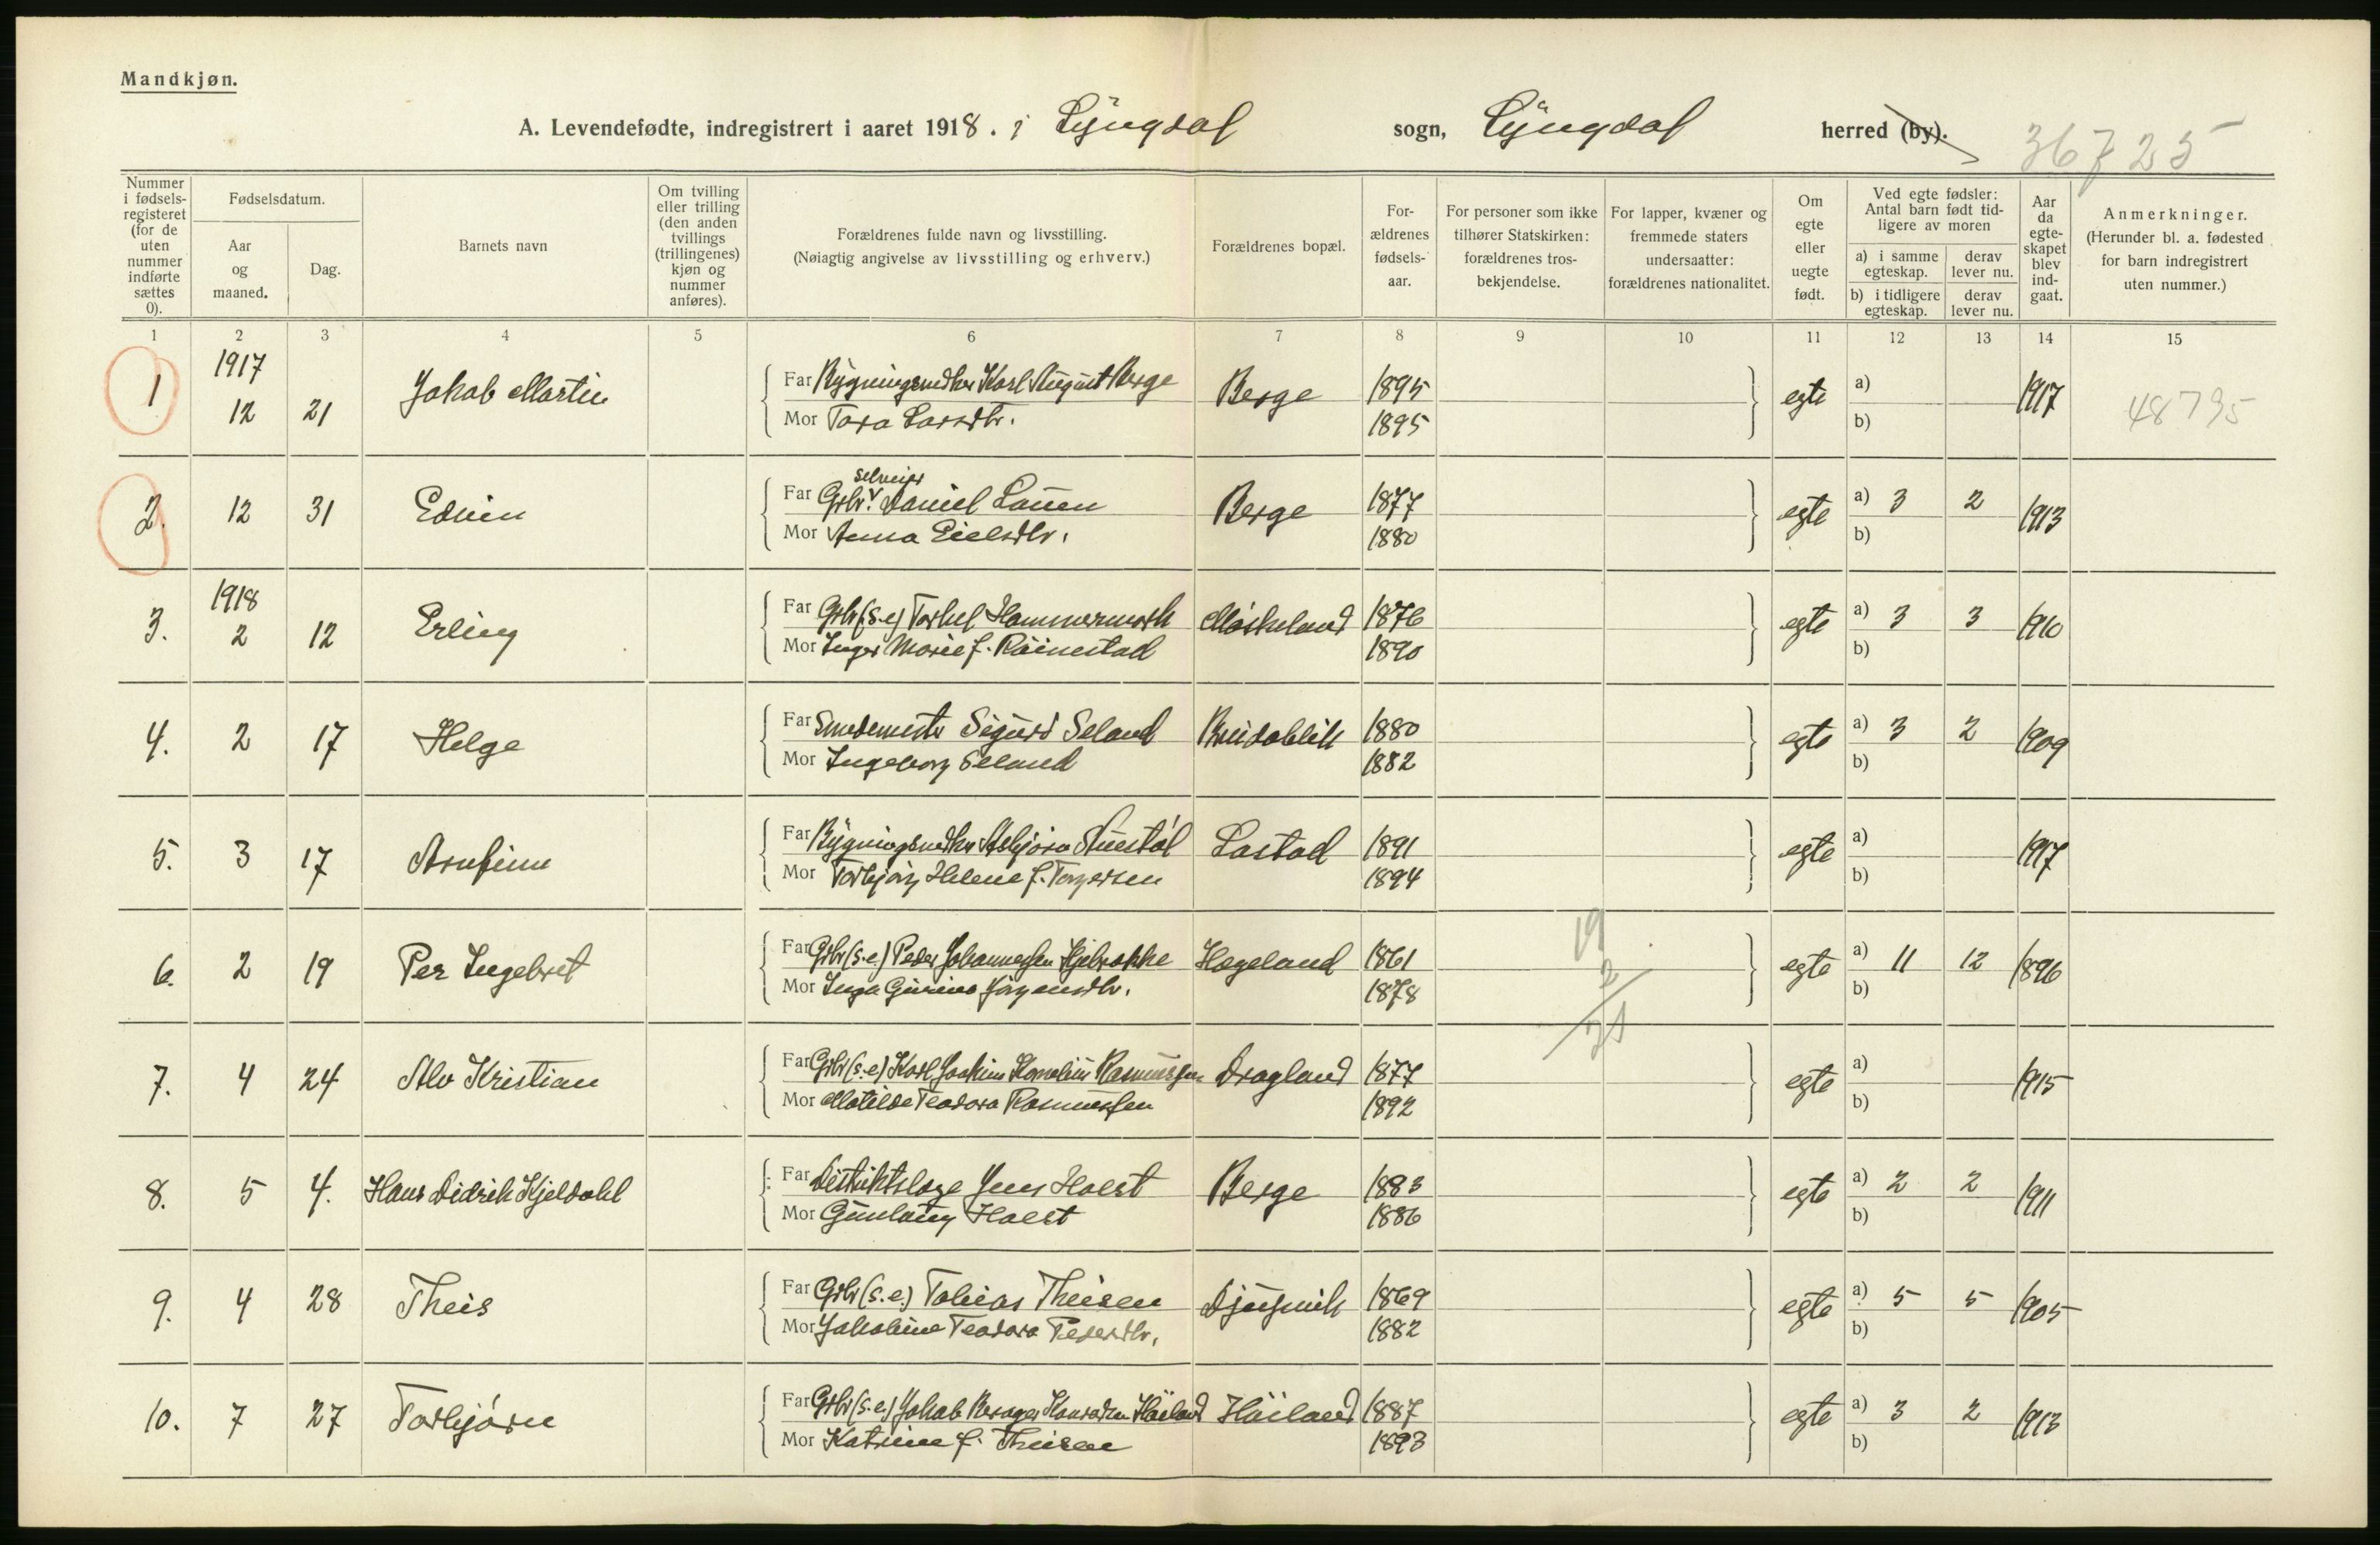 Mandkjøn.
A. Levendefødte, indregistrert i aaret 1918. i Lyngdal sogn, Lyngdal herred (by).
36725
Nummer i fødselsregisteret (for de uten nummer indførte sættes 0).
Fødselsdatum.
Aar og maaned.
Dag.
Barnets navn
Om tvilling eller trilling (den anden tvillings (trillingenes) kjøn og nummer anføres).
Forældrenes fulde navn og livsstilling.
(Nøiagtig angivelse av livsstilling og erhverv.)
Forældrenes bopæl.
Forældrenes fødselsaar.
For personer som ikke tilhører Statskirken: forældrenes trosbekjendelse.
For lapper, kvæner og fremmede staters undersaatter: forældrenes nationalitet.
Om egte eller uegte født.
Ved egte fødsler: Antal barn født tidligere av moren
a) i samme egteskap.
derav lever nu.
b) i tidligere egteskap.
derav lever nu.
Aar da egteskapet blev indgaat.
Anmerkninger.
(Herunder bl. a. fødested for barn indregistrert uten nummer.)
1 2 3 4 5 6 7 8 9 10 11 12 13 14 15
1 1917 12 21 Jakob Martin Far Bygningssnedker Karl August Berge Berge 1895 egte a) 1917 48795
Mor Tora Larsdtr. 1895 b)
selveier
2. 12 31 Edvin Far Grbr. Daniel Lauen Berge 1877 egte a) 3 2 1913
Mor Anna Eielsdtr. 1880 b)
3. 1918 2 12 Erling Far Grbr (s.e) Torkel Hammermork Møskeland 1876 egte a) 3 3 1910
Mor Inger Marie f. Røinestad 1890 b)
4. 2 17 Helge Far Smedemester Sigurd Seland Breidablik 1880 egte a) 3 2 1909
Mor Ingeborg Seland 1882 b)
5. 3 17 Arnfinn Far Bygningssnedker Asbjørn Austøl Lastad 1891 egte a) 1917
Mor Torbjørg Helene f. Torgersen 1894 b)
6. 2 19 Per Ingebret Far Grbr (s.e.) Peder Johannessen Hægeland 1861 egte a) 11 12 1896
Mor Inga Gurine Jørgensdtr. 1878 b)
19
2
21
7. 4 24 Alv Kristian Far Grbr (s.e) Karl Joakim Kornelius Rasmussen Dragland 1877 egte a) 1915
Mor Matilde Teodora Rasmussen 1892 b)
8. 5 4. Hans Didrik Kjeldahl Far Distriktslæge Jens Holst Berge 1883 egte a) 2 2 1911
Mor Gunlaug Holst 1886 b)
9. 4 28 Theis Far Grbr (s.e.) Tobias Theisen Djupvik 1869 egte a) 5 5 1905
Mor Jakobine Teodora Pedersdtr. 1882 b)
10. 7 27 Torbjørn Far Grbr (s.e.) Jakob Konradsen Høiland Høiland 1887 egte a) 3 2 1913
Mor Katrine f. Theisen 1893 b)